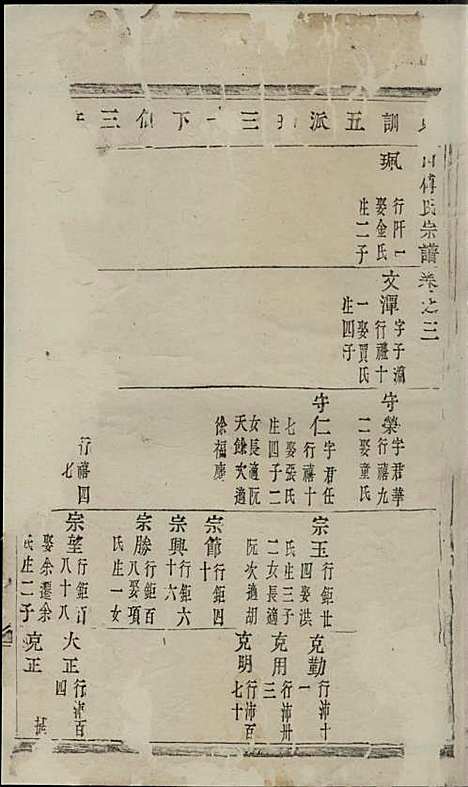 川傅氏宗譜卷之三
訓五派
三
下
三
珮
行阡一
娶金氏
生二子
文潭
字子淵
行禮十
一娶賈氏
生四子
守榮
字君華
行禧九
二娶童氏
守仁
字君任
行禧十
七娶張氏
生四子二
女長適阮
天錄次適
徐福慶
行禧四
七
宗玉
行鉅廿
四娶洪
氏生三子
二女長適
阮次適胡
宗節
行鉅四
十
宗興
行鉅六
十六
宗勝
行鉅百
八娶項
氏生一女
宗望
行鉅百
八十八
娶余遷余
氏生二子
克勤
行沛十
一
克用
行沛卅
三
克明
行沛百
七十
大正
行沛百
四
克正